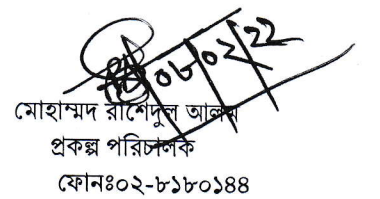 ০৮/০২/২২
মোহাম্মদ রাশেদুল আলম
প্রকল্প পরিচালক
ফোনঃ০২-৮১৮০১৪৪